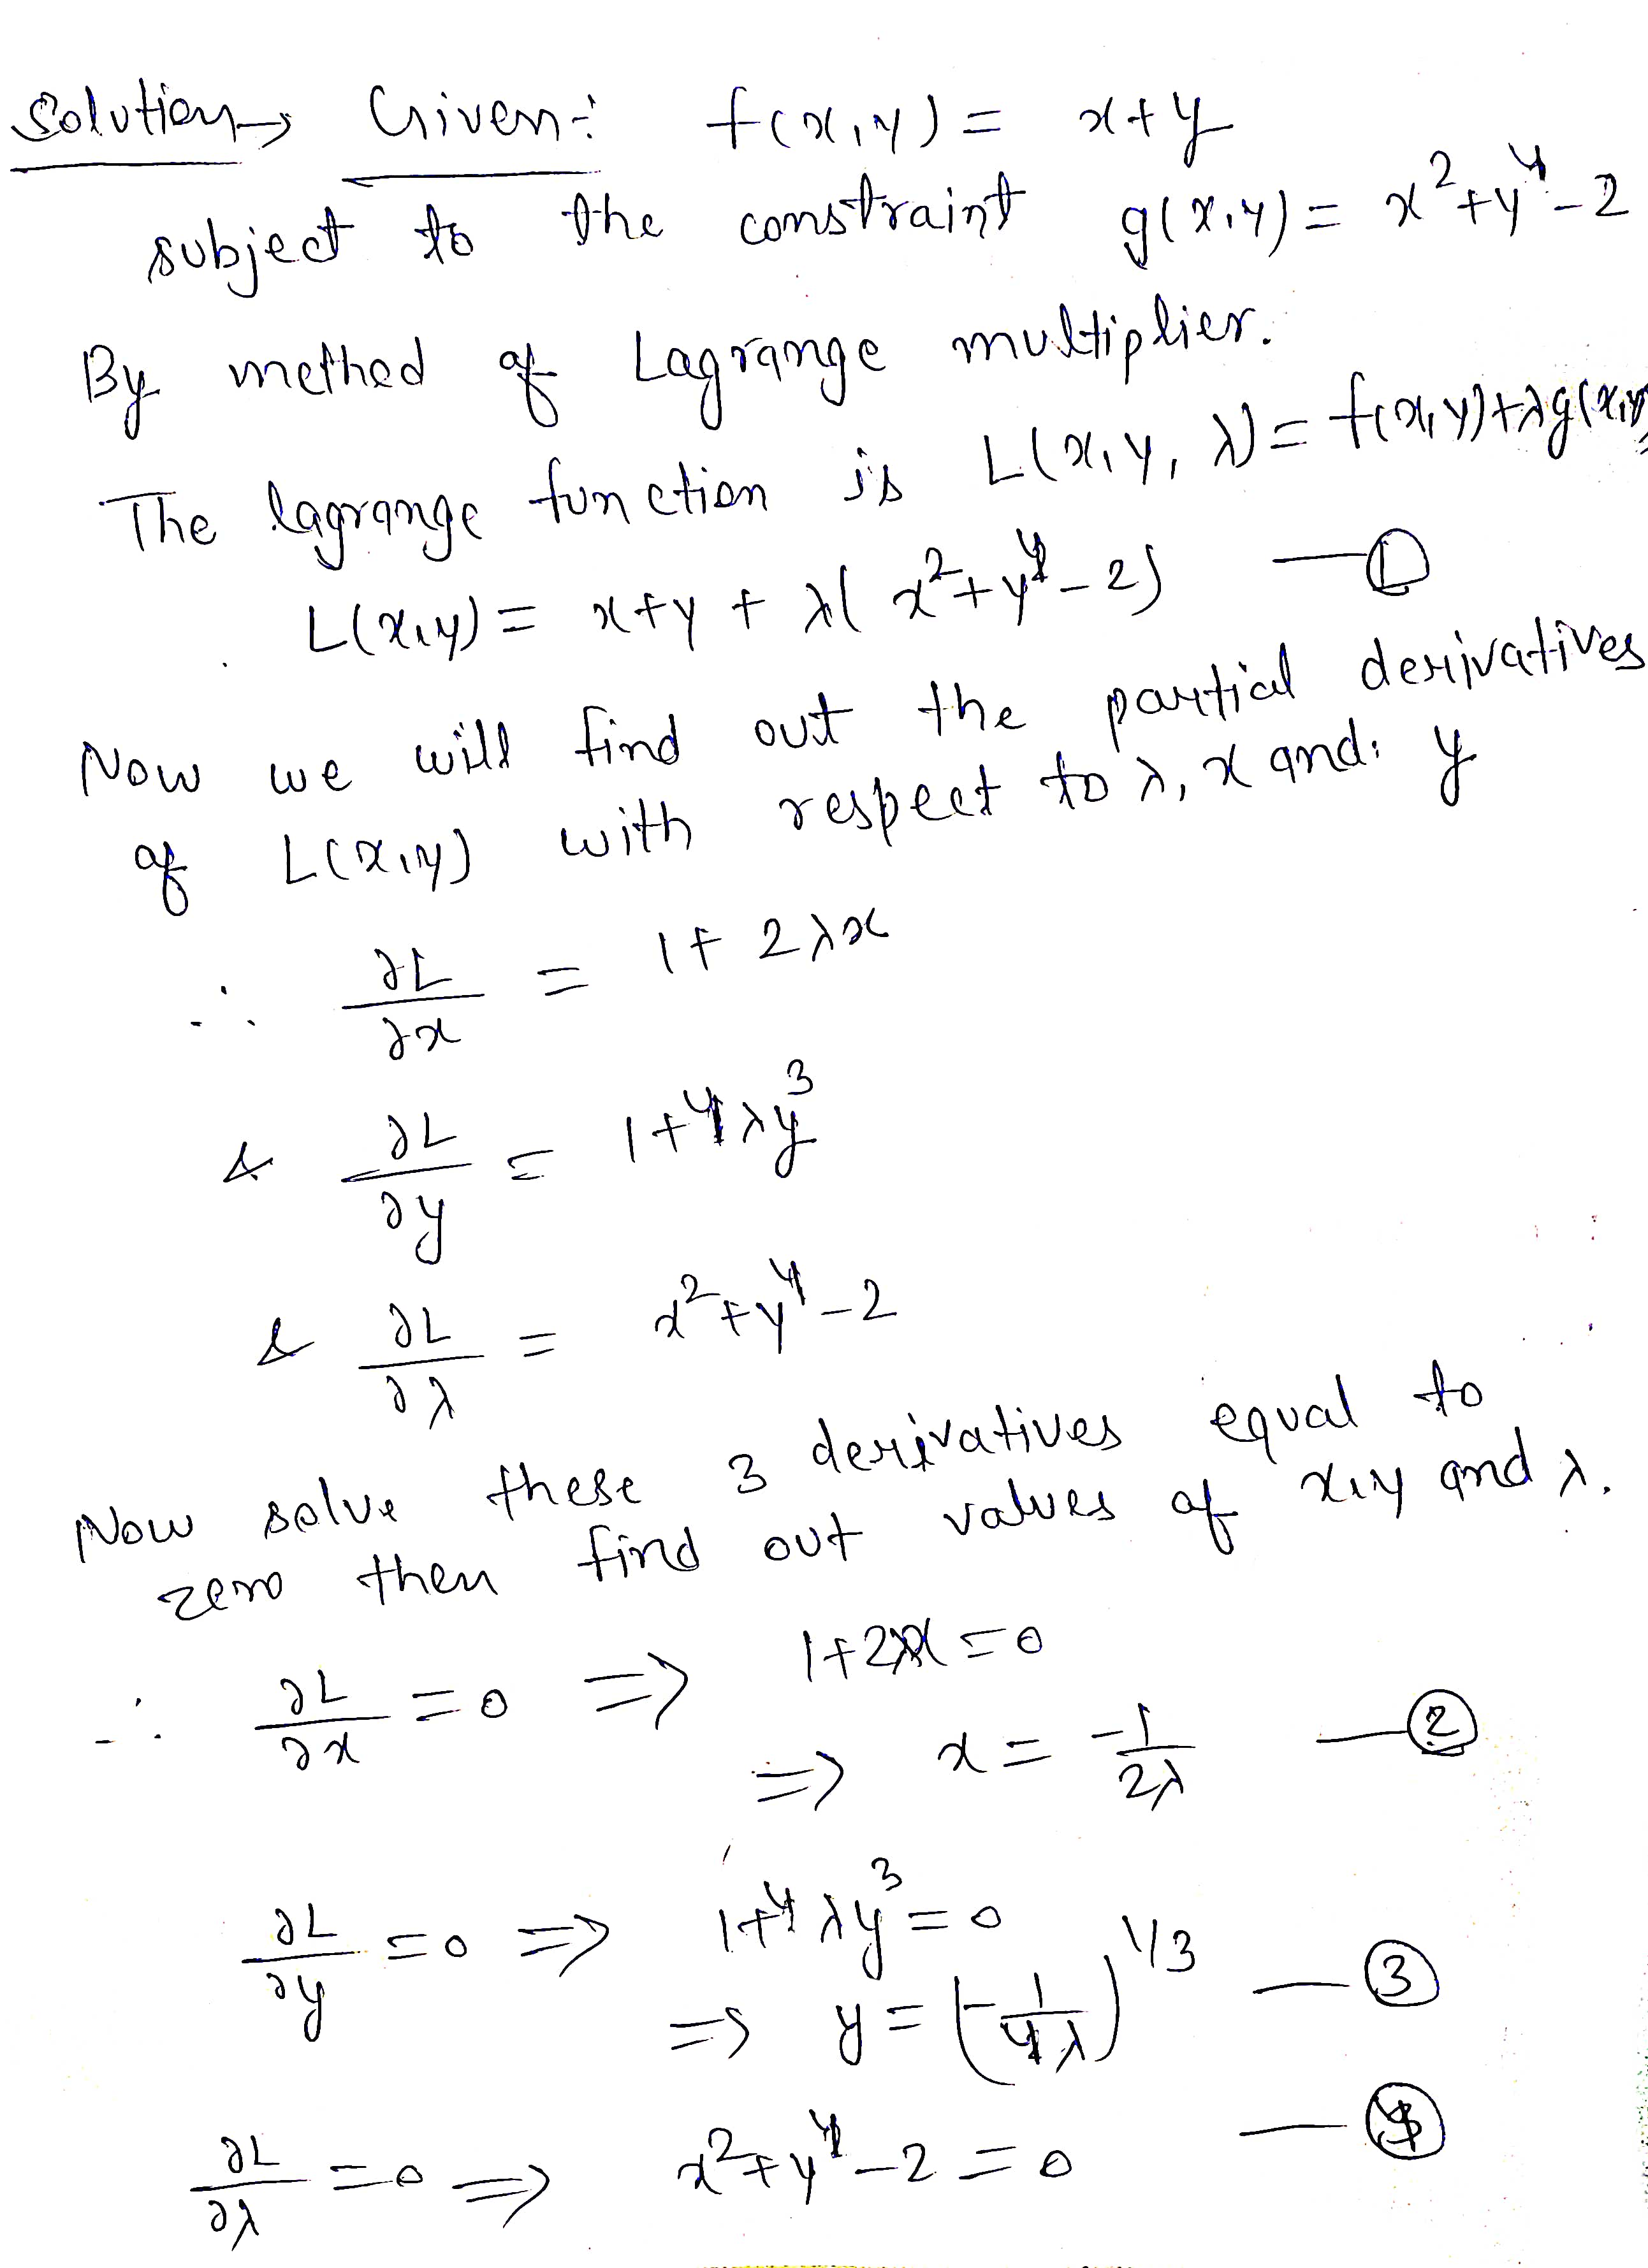 Solution → Given: f(x,y) = x+y
subject to the constraint g(x,y) = x²+y⁴-2
By method of Lagrange multiplier.
The lagrange function is L(x,y,λ) = f(x,y)+λg(x,y)
L(x,y) = x+y + λ( x²+y⁴-2) —①
Now we will find out the partial derivatives
of L(x,y) with respect to λ, x and y
∴ ∂L/∂x = 1+2λx
& ∂L/∂y = 1+4λy³
& ∂L/∂λ = x²+y⁴-2
Now solve these 3 derivatives equal to
zero then find out values of x,y and λ.
∴ ∂L/∂x = 0 ⇒ 1+2λx = 0
⇒ x = -1/2λ —②
∂L/∂y = 0 ⇒ 1+4λy³ = 0
⇒ y = (-1/4λ)^1/3 —③
∂L/∂λ = 0 ⇒ x²+y⁴-2 = 0 —④